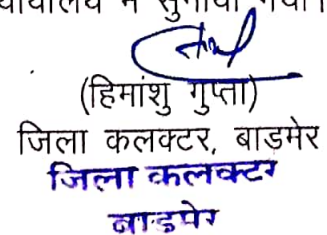 में सुनाया गया।
(हिमांशु गुप्ता)
जिला कलक्टर, बाडमेर
जिला कलक्टर
बाडमेर